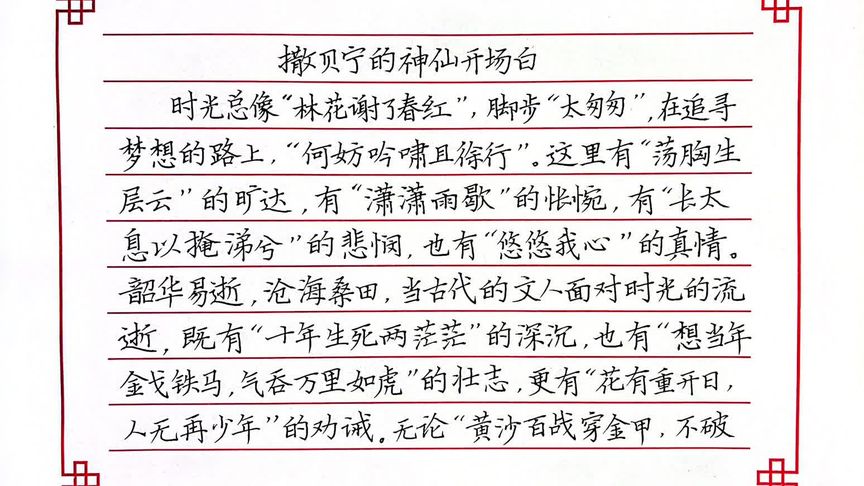 撒贝宁的神仙开场白
时光总像“林花谢了春红”，脚步“太匆匆”，在追寻
梦想的路上，“何妨吟啸且徐行”。这里有“荡胸生
层云”的旷达，有“潇潇雨歇”的怅惋，有“长太
息以掩涕兮”的悲悯，也有“悠悠我心”的真情。
韶华易逝，沧海桑田，当古代的文人面对时光的流
逝，既有“十年生死两茫茫”的深沉，也有“想当年
金戈铁马，气吞万里如虎”的壮志，更有“花有重开日，
人无再少年”的劝诫。无论“黄沙百战穿金甲，不破